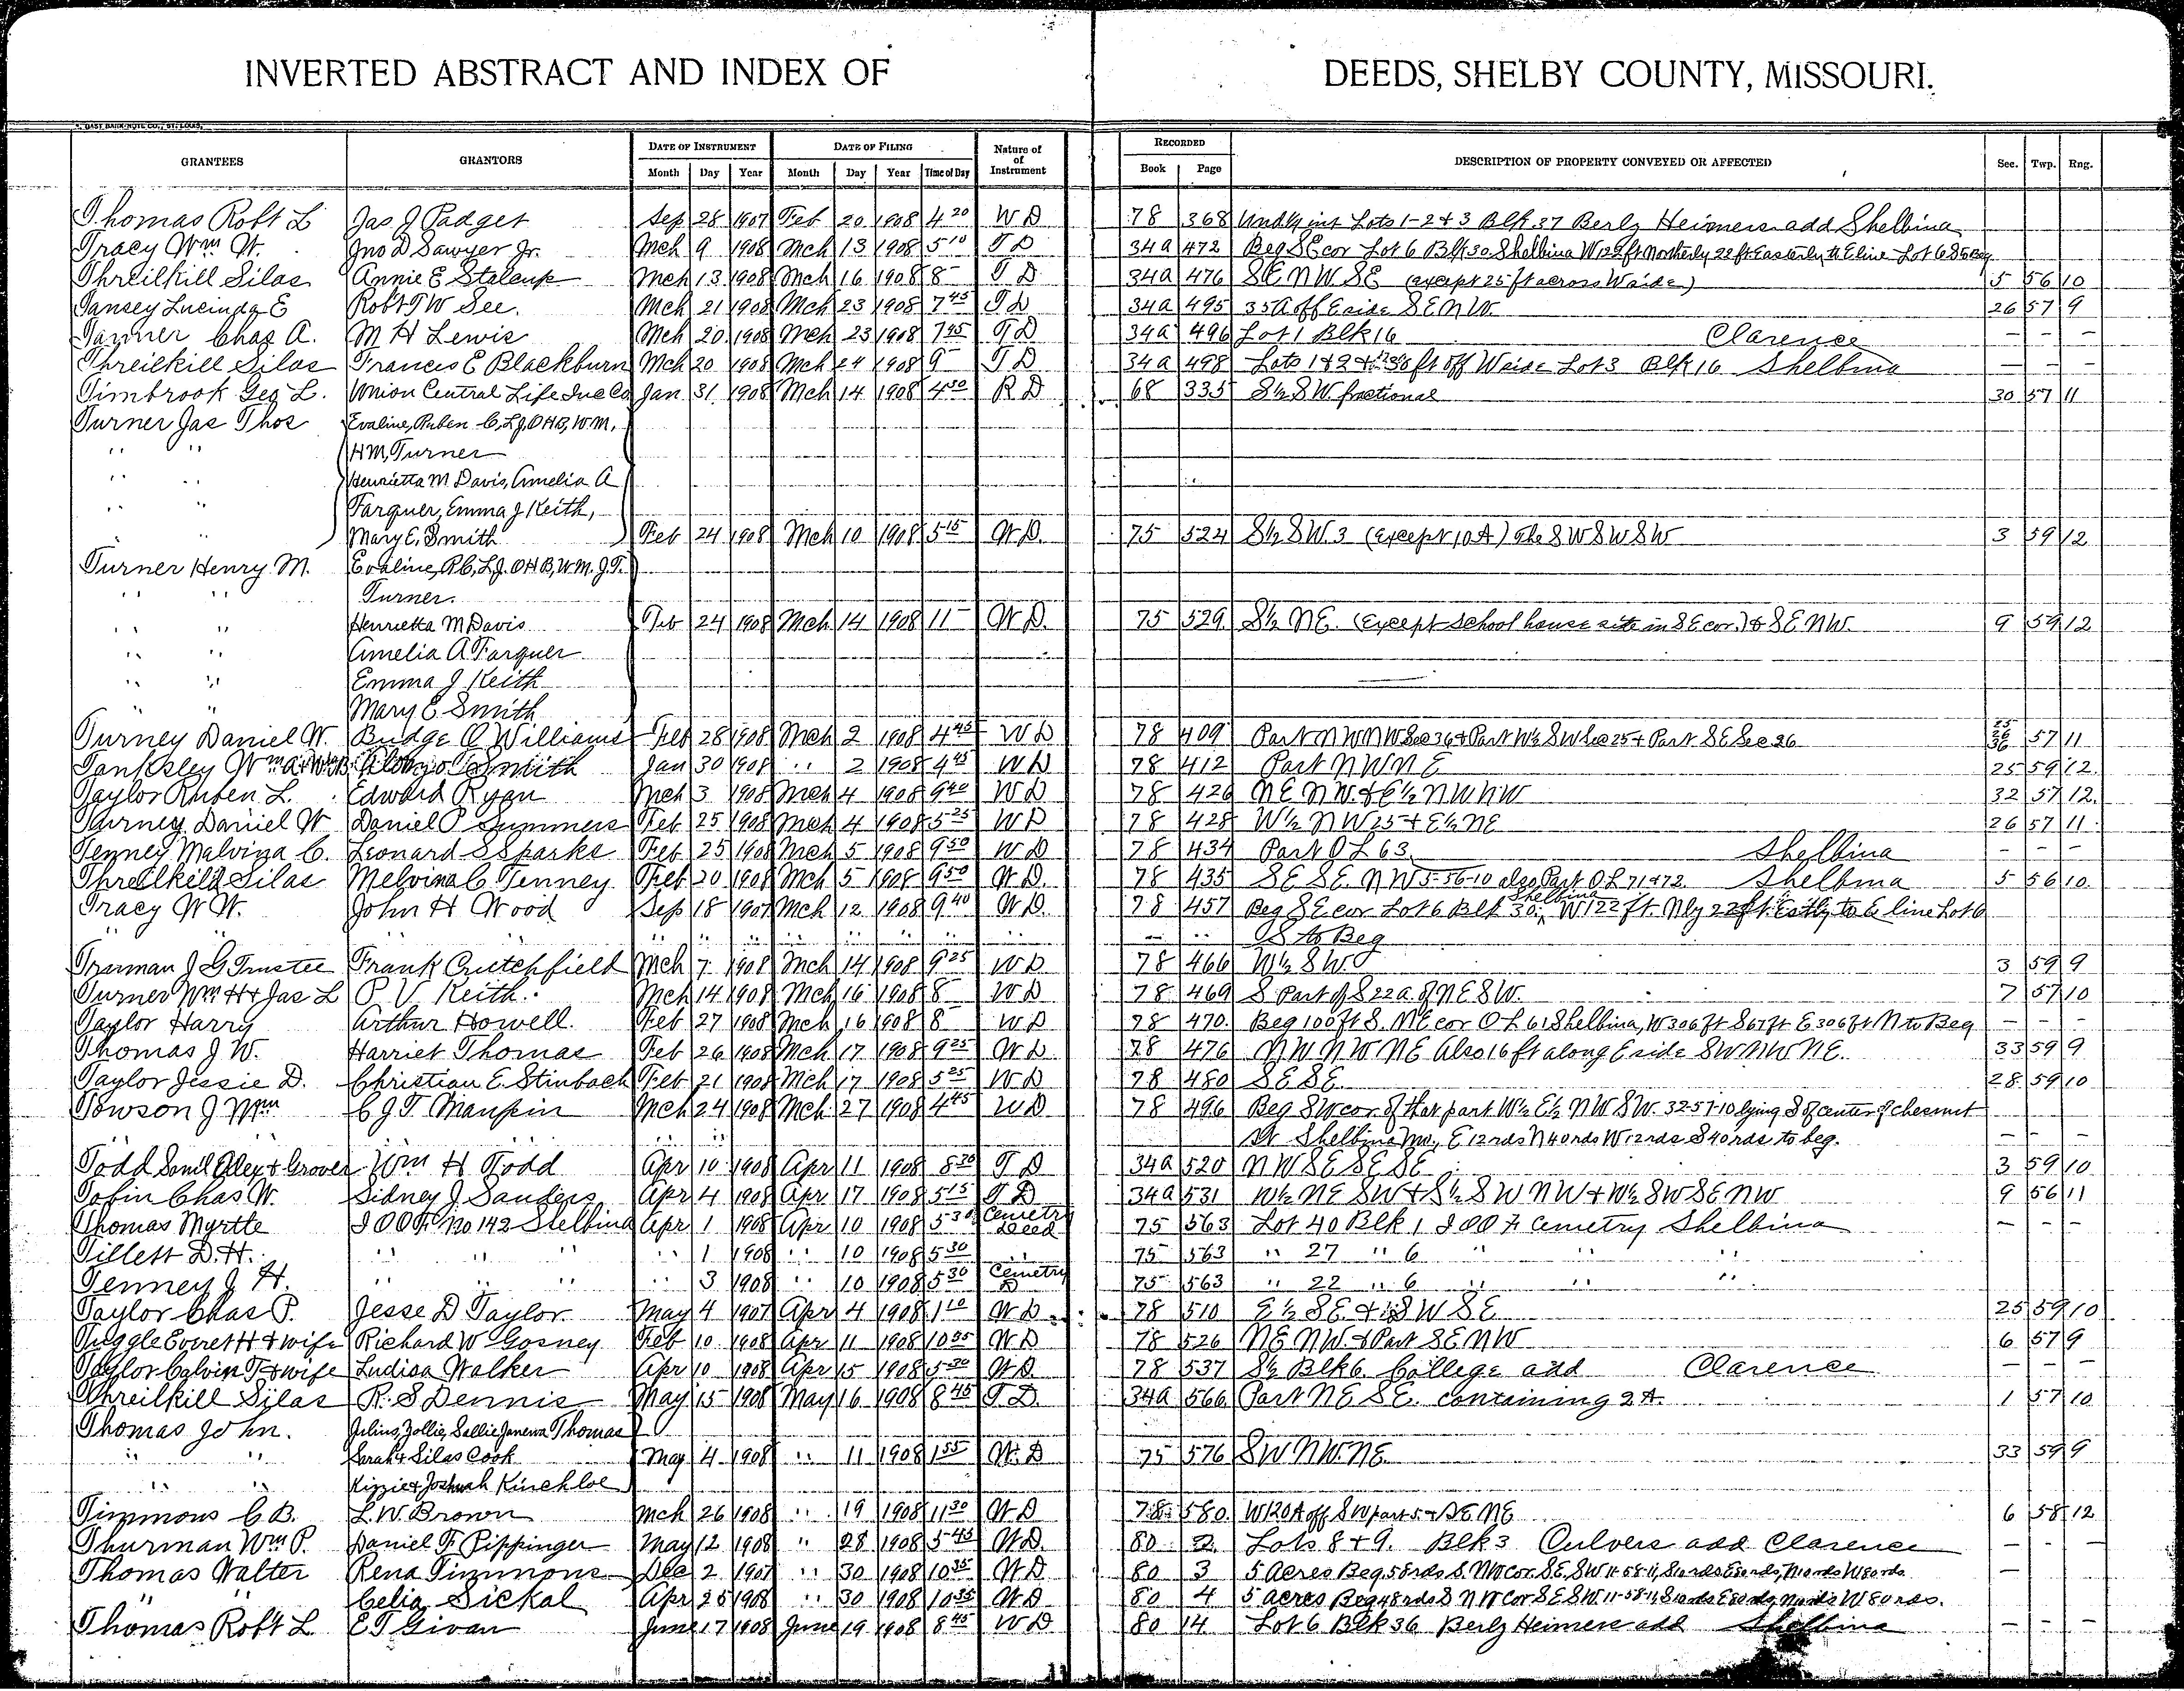 INVERTED ABSTRACT AND INDEX OF DEEDS, SHELBY COUNTY, MISSOURI.
GRANTEES GRANTORS DATE OF INSTRUMENT DATE OF FILING Nature of of Instrument RECORDED DESCRIPTION OF PROPERTY CONVEYED OR AFFECTED Sec. Twp. Rng.
Month Day Year Month Day Year Time of Day Book Page
Thomas Robt L Jas J Padget Sep 28 1907 Feb 20 1908 4 20 W D 78 368 int Lots 1-2 & 3 Blk 37 Berly Heimers add Shelbina
Tracy Wm W. Jno D Sawyer Jr. Mch 9 1908 Mch 13 1908 5 10 T D 34a 472 Beg SE cor Lot 6 Blk 30 Shelbina W 122 ft Northerly 22 ft Easterly to E line Lot 6 S to Beg
Threilkill Silas Annie E Stalcup Mch 13 1908 Mch 16 1908 8 - T D 34a 476 SE NW SE (except 25 ft across W side) 5 56 10
Tansey Lucinda E Robt T W See. Mch 21 1908 Mch 23 1908 7 45 T D 34a 495 35 A off E side SE NW. 26 57 9
Tanner Chas A. M H Lewis Mch 20 1908 Mch 23 1908 7 45 T D 34a 496 Lot 1 Blk 16 Clarence - - -
Threilkill Silas Frances E Blackburn Mch 20 1908 Mch 24 1908 9 - T D 34a 498 Lots 1 & 2 & ft off W side Lot 3 Blk 16 Shelbina - - -
Timbrook Geo L. Union Central Life Ins Co Jan 31 1908 Mch 14 1908 4 30 R D 68 335 S½ SW. fractional 30 57 11
Turner Jas Thos Evaline, Ruben C, L J, O H B, W M,
" " H M, Turner
" " Henrietta M Davis, Amelia A
" " Farquer, Emma J Keith,
" Mary E. Smith Feb 24 1908 Mch 10 1908 5 15 W D. 75 524 S½ SW. 3 (except 10 A) The SW SW SW 3 59 12
Turner Henry M. Evaline, R C, L J. O H B, W M. J T.
" " Turner.
" " Henrietta M Davis Feb 24 1908 Mch 14 1908 11 - W D. 75 529 S½ NE. (Except School house site in SE cor.) & SE NW. 9 59 12
" " Amelia A Farquer
" " Emma J Keith
" " Mary E Smith
Turney Daniel W. Budge O Williams Feb 28 1908 Mch 2 1908 4 45 W D 78 409 Part NW NW Sec 36 & Part W½ SW Sec 25 & Part SE Sec 26 25 26 36 57 11
Tanksley Wm A Smith Jan 30 1908 " 2 1908 4 45 W D 78 412 Part NW NE 25 59 12.
Taylor Ruben L. Edward Ryan Mch 3 1908 Mch 4 1908 9 40 W D 78 426 NE NW. & E½ NW NW 32 57 12.
Turney Daniel W Daniel P Summers Feb 25 1908 Mch 4 1908 5 25 W D 78 428 W½ NW 25 & E½ NE 26 57 11.
Tenney Malvina C. Leonard S Sparks Feb 25 1908 Mch 5 1908 9 50 W D 78 434 Part O L 63 Shelbina - - -
Threilkild Silas Melvina C Tenney Feb 20 1908 Mch 5 1908 9 50 W D. 78 435 SE SE. NW 5-56-10 also Part O L 71 & 72. Shelbina 5 56 10.
Tracy W W. John H Wood Sep 18 1907 Mch 12 1908 9 40 W D. 78 457 Beg SE cor Lot 6 Blk 30, Shelbina W 122 ft. Nly 22 ft Estly to E line Lot 6
" " " " " " " " " S to Beg
Truman J G Trustee Frank Crutchfield Mch 7 1908 Mch 14 1908 9 25 W D 78 466 W½ SW 3 59 9
Turner Wm H & Jas L P V Keith. Mch 14 1908 Mch 16 1908 8 - W D 78 469 S Part of S 22 a. of NE SW. 7 57 10
Taylor Harry Arthur Howell. Feb 27 1908 Mch 16 1908 8 - W D 78 470. Beg 100 ft S. NE cor O L 61 Shelbina, W 306 ft S 67 ft E 306 ft N to Beg - - -
Thomas J W. Harriet Thomas Feb 26 1908 Mch 17 1908 9 25 W D 78 476 NW NW NE Also 16 ft along E side SW NW NE. 33 59 9
Taylor Jessie D. Christian E Stinbach Feb 21 1908 Mch 17 1908 5 25 W D 78 480 SE SE. 28 59 10
Towson J Wm C J T Maupin Mch 24 1908 Mch 27 1908 4 45 W D 78 496 Beg SW cor. of that part W½ E½ NW SW. 32-57-10 lying S of center of chesnut
" " St Shelbina Mo., E 12 rds N 40 rds W 12 rds S 40 rds to beg. - - -
Todd Saml Alex & Grover Wm H Todd Apr 10 1908 Apr 11 1908 8 30 T D 34a 520 NW SE SE SE 3 59 10
Tobin Chas W. Sidney J Sanders Apr 4 1908 Apr 17 1908 5 15 T D 34a 531 W½ NE SW & S½ SW NW & W½ SW SE NW 9 56 11
Thomas Myrtle I O O F No 142 Shelbina Apr 1 1908 Apr 10 1908 5 30 Cemetry Deed 75 563 Lot 40 Blk 1 I O O F Cemetry Shelbina - - -
Tillett D. H. " " " " 1 1908 " 10 1908 5 30 " 75 563 " 27 " 6 " " "
Tenney J H. " " " " 3 1908 " 10 1908 5 30 Cemetry D 75 563 " 22 " 6 " " "
Taylor Chas P. Jesse D Taylor. May 4 1907 Apr 4 1908 1 10 W D 78 510 E½ SE & SW SE 25 59 10
Tuggle Everet H & wife Richard W Gosney Feb 10 1908 Apr 11 1908 10 35 W D 78 526 NE NW & Part SE NW 6 57 9
Taylor Calvin T & wife Ludisa Walker Apr 10 1908 Apr 15 1908 5 30 W D 78 537 S½ Blk 6 College add Clarence - - -
Threilkill Silas R. S Dennis May 15 1908 May 16 1908 8 45 T D. 34a 566 Part NE SE. containing 2 A. 1 57 10
Thomas John. Julius, Zollie, Sallie Thomas
" " Sarah & Silas Cook May 4 1908 " 11 1908 1 55 W. D 75 576 SW NW. NE. 33 59 9
" " Kizzie & Joshuah Kinchloe
Timmons C B. L. W. Brown Mch 26 1908 " 19 1908 11 30 W D 78 580 W 120 A off SW part 5 & SE NE 6 58 12
Thurman Wm P. Daniel F Pippinger May 12 1908 " 28 1908 5 45 W D. 80 2 Lots 8 & 9. Blk 3 Culvers add Clarence - - -
Thomas Walter Rena Timmons Dec 2 1907 " 30 1908 10 35 W D 80 3 5 Acres Beg 58 rds S. NW cor. SE, SW 11-58-11, S 10 rds E 80 rds, N 10 rds W 80 rds -
" " Celia Sickal Apr 25 1908 " 30 1908 10 35 W D 80 4 5 acres Beg 48 rds S NW cor SE SW. 11-58-11 S 10 rds E 80 rds N 10 rds W 80 rds.
Thomas Robt L E T Givan June 17 1908 June 19 1908 8 45 W D 80 14 Lot 6 Blk 36 Berly Heimers add Shelbina - - -